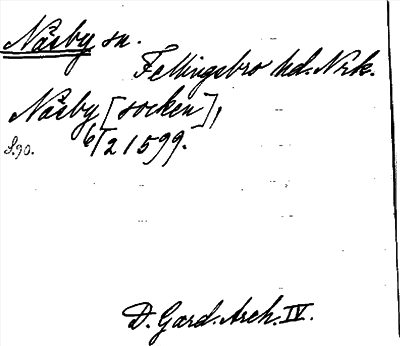 Näsby sn.
Fellingsbro hd. Nrk.
Näsby [socken],
6/2 1599.
S. 90.
D. Gard. Arch. IV.